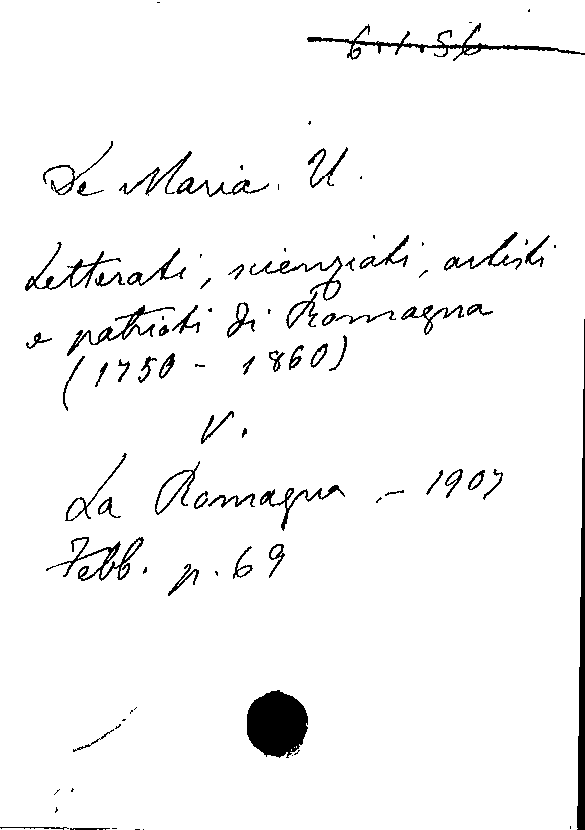 6.1.56
De Maria U.
Letterati, scienziati, artisti
e patrioti di Romagna
(1750 - 1860)
V.
La Romagna - 1907
Febb. p. 69